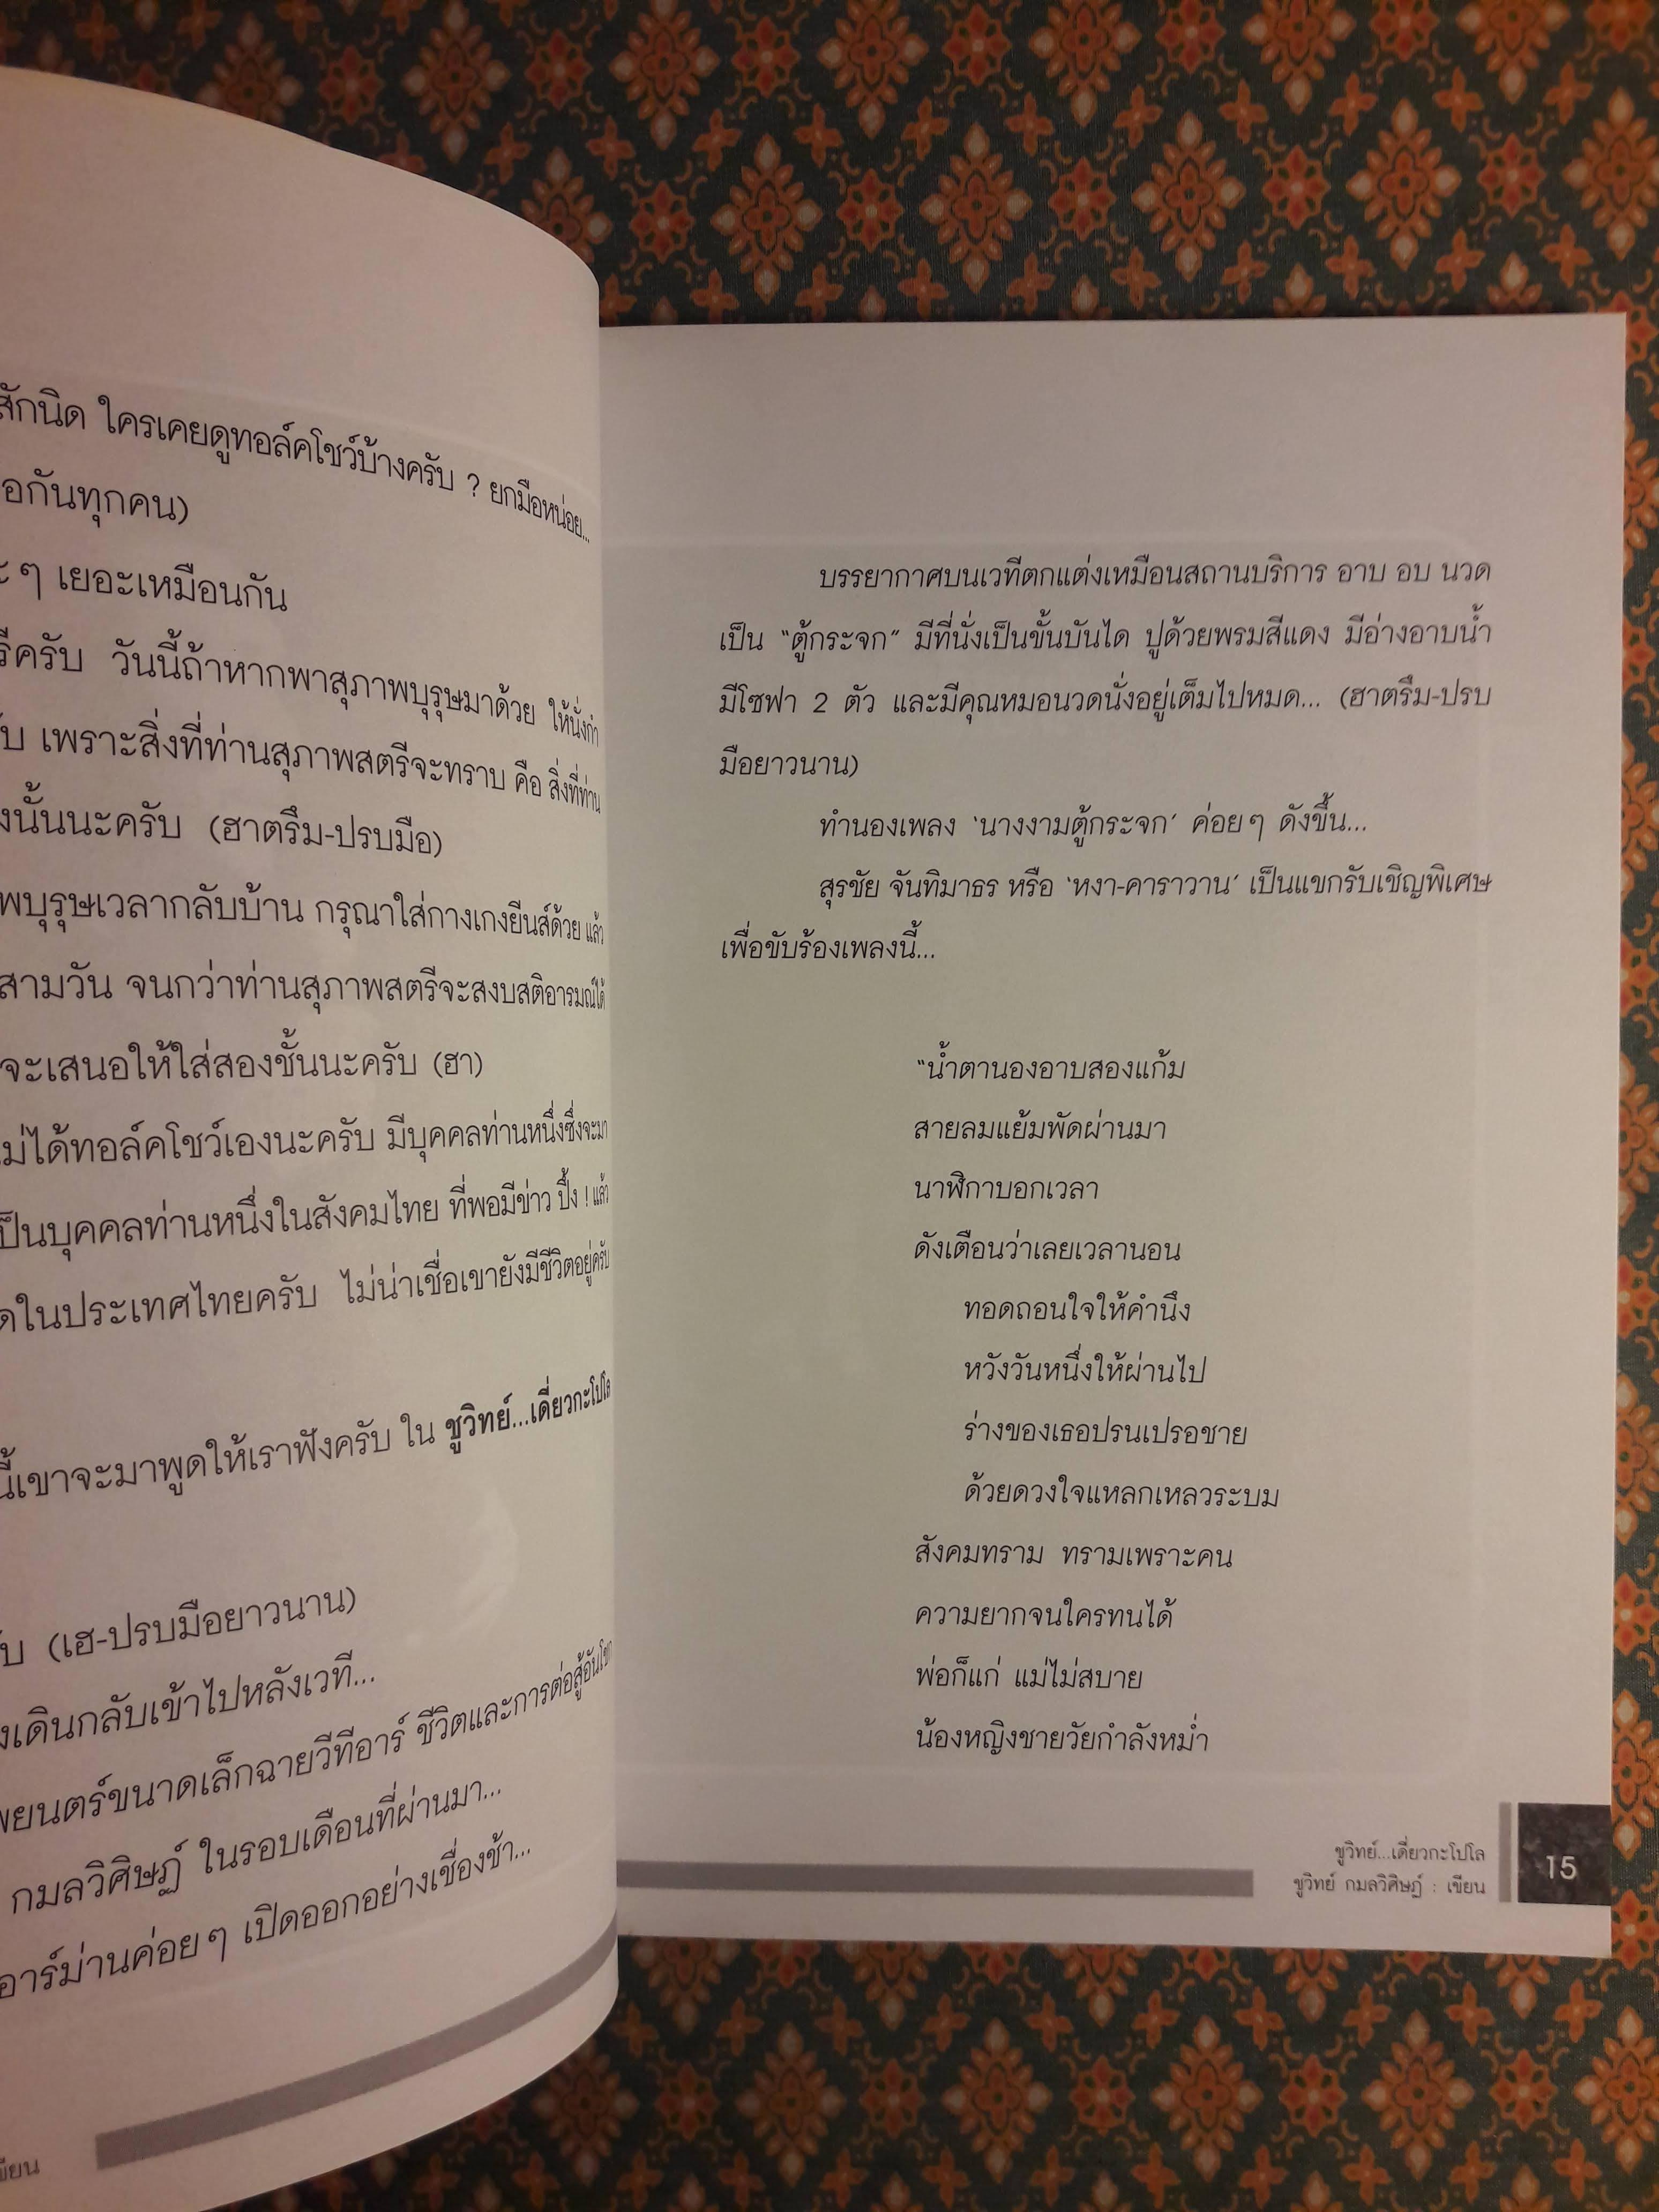 สักนิด ใครเคยดูทอล์คโชว์บ้างครับ ? ยกมือหน่อย...
อกันทุกคน)
ะๆ เยอะเหมือนกัน
รีครับ วันนี้ถ้าหากพาสุภาพบุรุษมาด้วย ให้นั่ง
บ เพราะสิ่งที่ท่านสุภาพสตรีจะทราบ คือ สิ่งที่ท่าน
งนั้นนะครับ (ฮาตรึม-ปรบมือ)
พบุรุษเวลากลับบ้าน กรุณาใส่กางเกงยีนส์ด้วย แล้ว
สามวัน จนกว่าท่านสุภาพสตรีจะสงบสติอารมณ์ได้
จะเสนอให้ใส่สองชั้นนะครับ (ฮา)
ม่ได้ทอล์คโชว์เองนะครับ มีบุคคลท่านหนึ่งซึ่งจะมา
ป็นบุคคลท่านหนึ่งในสังคมไทย ที่พอมีข่าว ปึ้ง ! แล้ว
ดในประเทศไทยครับ ไม่น่าเชื่อเขายังมีชีวิตอยู่ครับ
นี้เขาจะมาพูดให้เราฟังครับ ใน ชูวิทย์...เดี่ยวกะโปโล
บ (เฮ-ปรบมือยาวนาน)
งเดินกลับเข้าไปหลังเวที...
พยนตร์ขนาดเล็กฉายวีทีอาร์ ชีวิตและการต่อสู้อัน
กมลวิศิษฎ์ ในรอบเดือนที่ผ่านมา...
อาร์ม่านค่อยๆ เปิดออกอย่างเชื่องช้า...
ขียน
บรรยากาศบนเวทีตกแต่งเหมือนสถานบริการ อาบ อบ นวด
เป็น “ตู้กระจก” มีที่นั่งเป็นขั้นบันได ปูด้วยพรมสีแดง มีอ่างอาบน้ำ
มีโซฟา 2 ตัว และมีคุณหมอนวดนั่งอยู่เต็มไปหมด... (ฮาตรึม-ปรบ
มือยาวนาน)
ทำนองเพลง ‘นางงามตู้กระจก’ ค่อยๆ ดังขึ้น...
สุรชัย จันทิมาธร หรือ ‘หงา-คาราวาน’ เป็นแขกรับเชิญพิเศษ
เพื่อขับร้องเพลงนี้...
“น้ำตานองอาบสองแก้ม
สายลมแย้มพัดผ่านมา
นาฬิกาบอกเวลา
ดังเตือนว่าเลยเวลานอน
ทอดถอนใจให้คำนึง
หวังวันหนึ่งให้ผ่านไป
ร่างของเธอปรนเปรอชาย
ด้วยดวงใจแหลกเหลวระบม
สังคมทราม ทรามเพราะคน
ความยากจนใครทนได้
พ่อก็แก่ แม่ไม่สบาย
น้องหญิงชายวัยกำลังหม่ำ
ชูวิทย์...เดี่ยวกะโปโล
ชูวิทย์ กมลวิศิษฎ์ : เขียน
15